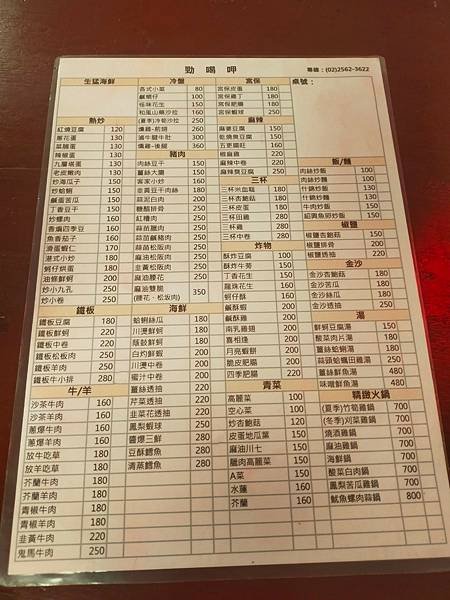 勁喝呷
專線：(02)2562-3622
生猛海鮮
冷盤
各式小菜 80
鹹蜆仔 100
怪味花生 150
和風山藥沙拉 200
(夏季)冷筍沙拉 250
燻雞-前翅 260
滷牛腱牛肚 300
燻雞-後腿 360
宮保
宮保皮蛋 180
宮保雞丁 180
宮保肥腸 180
宮保蝦球 250
桌號：
熱炒
紅燒豆腐 120
蔥花蛋 130
菜脯蛋 130
辣椒蛋 130
九層塔蛋 130
老皮嫩肉 130
炒海瓜子 150
炒蛤蜊 150
鹹蛋苦瓜 150
丁香豆干 150
炒螺肉 160
香爌四季豆 160
魚香茄子 160
滑蛋蝦仁 170
港式小炒 180
蚵仔烘蛋 180
油條鮮蚵 200
炒小九孔 250
炒小卷 200
豬肉
肉絲豆干 150
薑絲大腸 180
客家小炒 160
韭黃豆干肉絲 180
蒜泥白肉 200
椒鹽排骨 200
紅糟肉 200
蒜苗臘肉 200
蒜苗鹹豬肉 200
蒜苗松阪肉 250
麻油松阪肉 250
韭黃松阪肉 250
麻油腰花 250
麻油雙脆 350
(腰花‧松坂肉)
麻辣
麻婆豆腐 150
乾燒臭豆腐 180
五更腸旺 160
椒麻雞 220
麻辣中卷 220
麻辣臭豆腐 250
三杯
三杯米血糕 180
三杯杏鮑菇 180
三杯皮蛋 180
三杯田雞 250
三杯雞 280
三杯中卷 280
飯/麵
肉絲炒飯 100
肉絲炒麵 100
什錦炒飯 130
什錦炒麵 130
牛肉炒飯 150
紹興魚卵炒飯 150
椒鹽
椒鹽杏鮑菇 180
椒鹽排骨 200
椒鹽透抽 220
炸物
酥炸豆腐 100
酥炸牛蒡 150
丁香花生 150
龍珠花生 160
蚵仔酥 160
鹹酥蝦 200
鹹酥雞 200
南乳雞翅 200
喜相逢 200
月亮蝦餅 200
脆皮肥腸 200
四季肥腸 220
金沙
金沙杏鮑菇 180
金沙苦瓜 180
金沙豆腐 180
金沙中卷 200
湯
鮮蚵豆腐湯 180
酸菜肉片湯 180
薑絲蛤蜊湯 180
蒜頭蛤蠣田雞湯 250
薑絲鮮魚湯 480
味噌鮮魚湯 480
鐵板
鐵板豆腐 180
鐵板鮮蚵 220
鐵板中卷 220
鐵板松板肉 250
鐵板羊肉 250
鐵板牛小排 280
海鮮
蛤蜊絲瓜 180
川燙鮮蚵 180
蔭豉鮮蚵 180
白灼鮮蝦 200
川燙中卷 200
蜜汁中卷 200
薑絲透抽 220
芹菜透抽 220
韭菜花透抽 220
鳳梨蝦球 250
醬爆三鮮 280
豆酥鱈魚 280
清蒸鱈魚 280
牛/羊
沙茶牛肉 160
沙茶羊肉 160
蔥爆牛肉 160
蔥爆羊肉 160
放牛吃草 180
放羊吃草 180
芥蘭牛肉 180
芥蘭羊肉 180
青椒牛肉 180
青椒羊肉 180
韭黃牛肉 220
鬼馬牛肉 250
青菜
高麗菜 100
空心菜 100
炒杏鮑菇 150
皮蛋地瓜葉 150
麻油川七 150
臘肉高麗菜 150
A菜 150
水蓮 160
芥蘭 160
精緻火鍋
(夏季)竹筍雞鍋 700
(冬季)刈菜雞鍋 700
燒酒雞鍋 700
麻油雞鍋 700
海鮮鍋 700
酸菜白肉鍋 700
鳳梨苦瓜雞鍋 700
魷魚螺肉蒜鍋 800